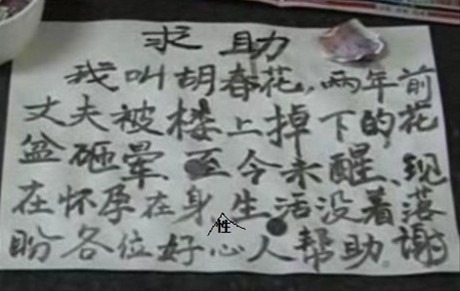 求助
我叫胡春花,两年前
丈夫被楼上掉下的花
盆砸晕、至今未醒、现
在怀孕在身,性生活没着落
盼各位好心人帮助。谢